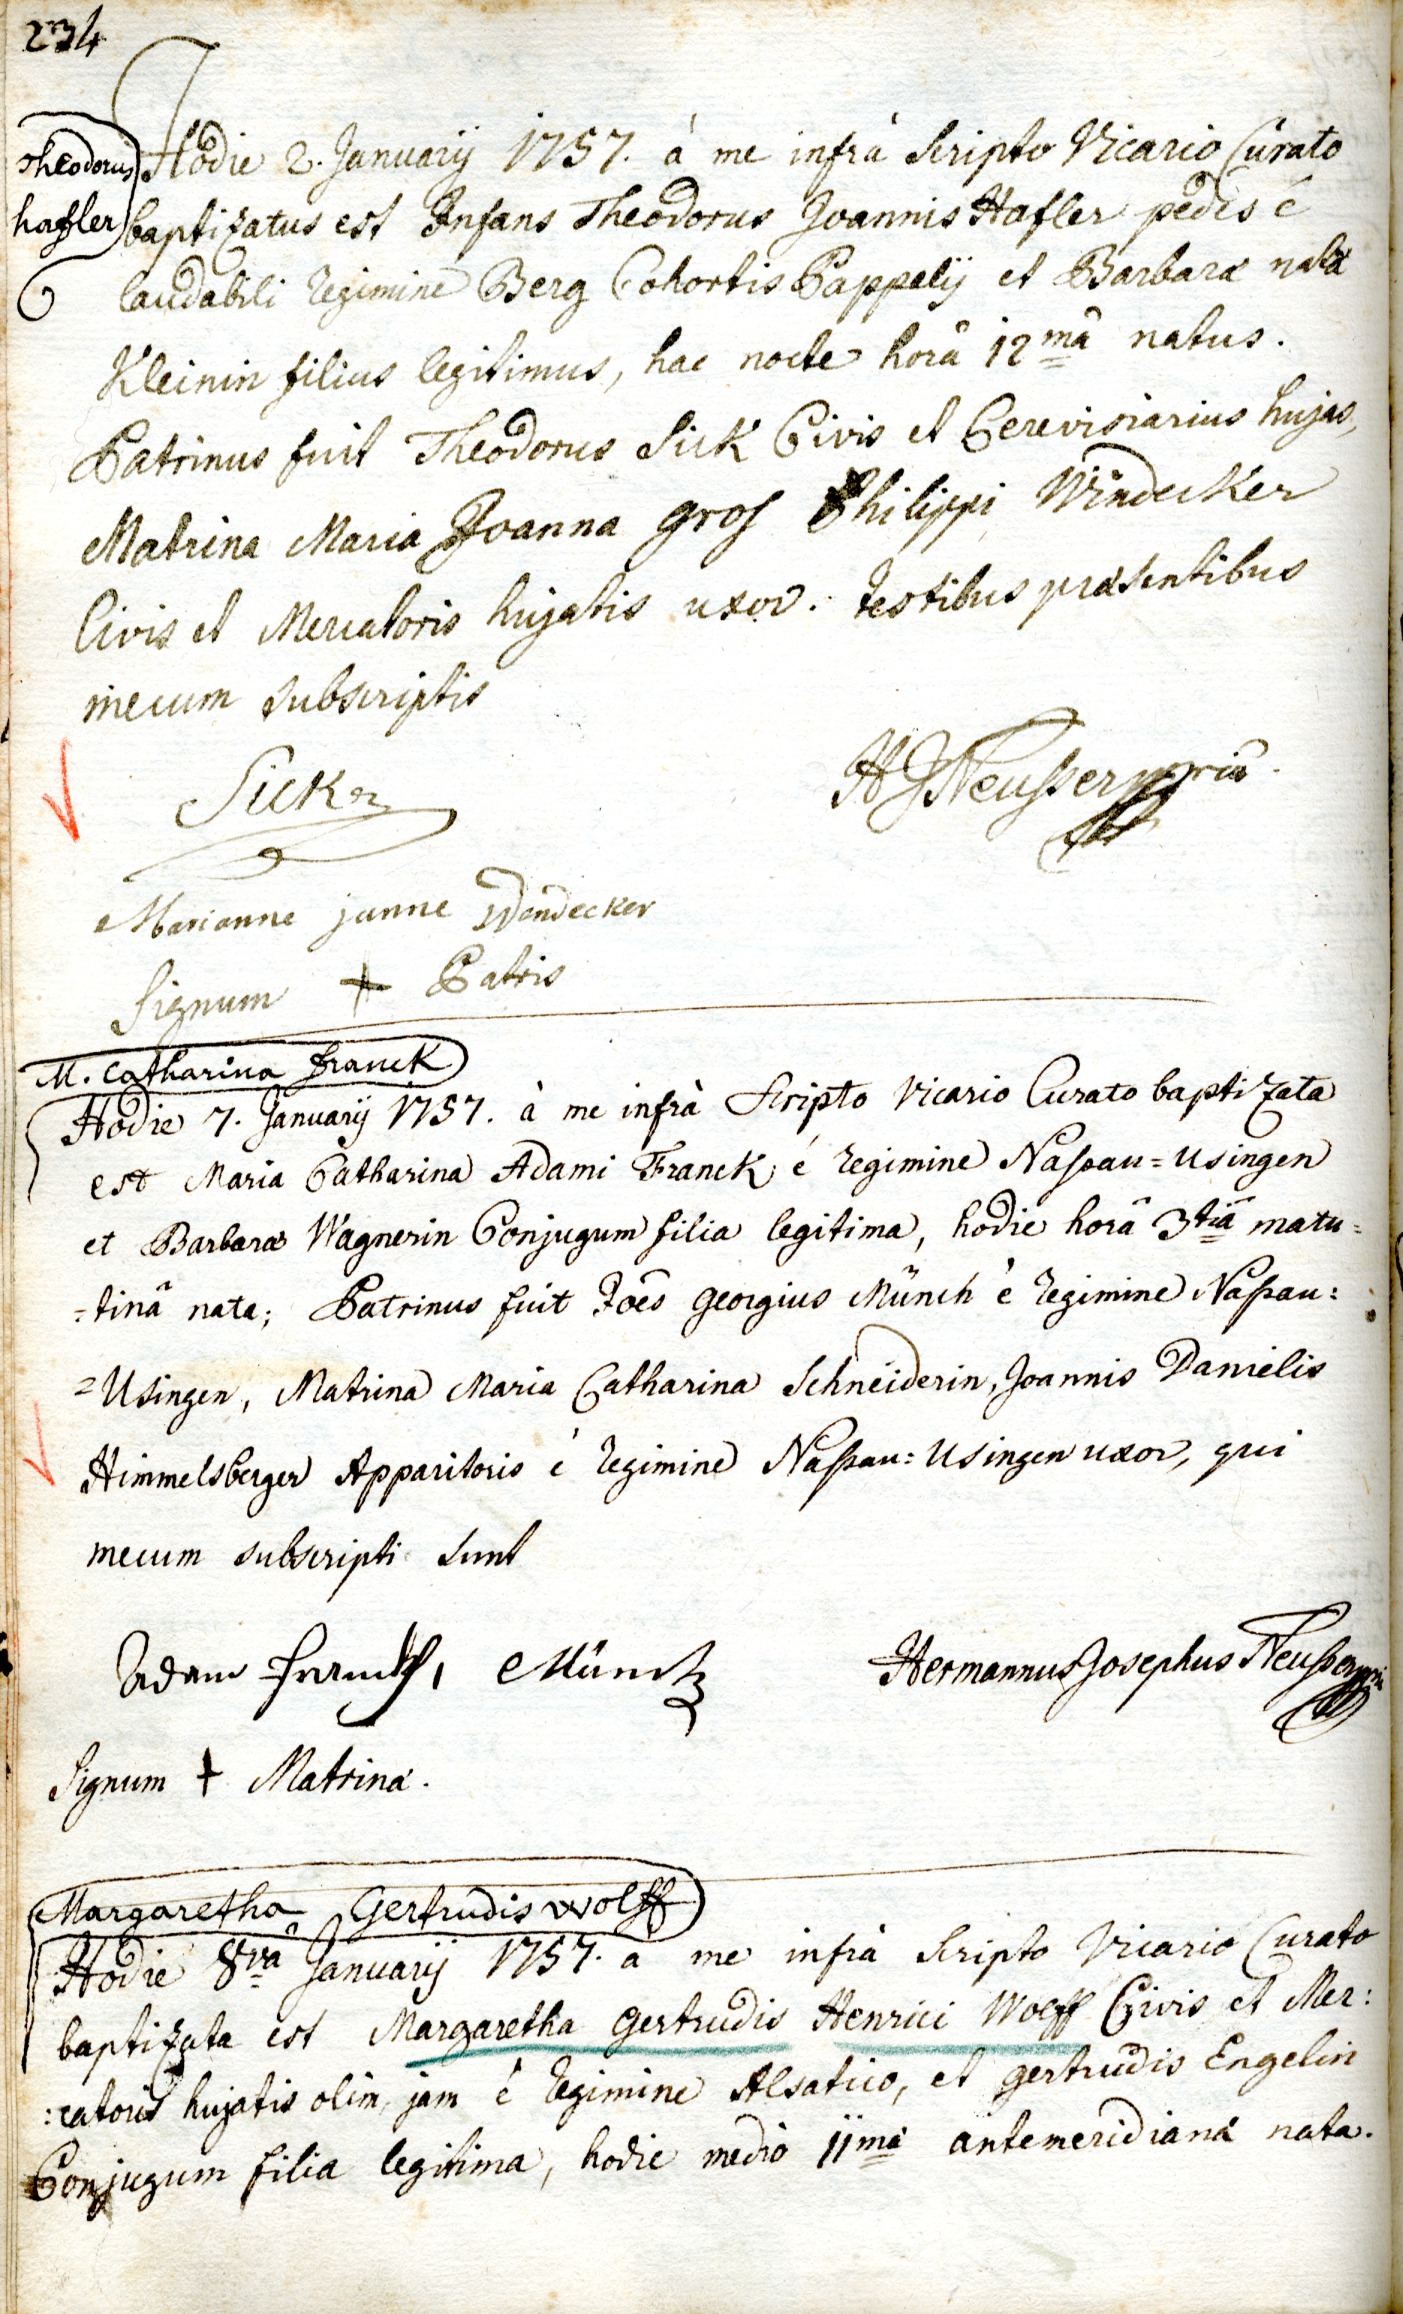 234
Theodorus
hafler
Hodie 2. Januarÿ 1757. à me infrà Scripto Vicario Curato
baptizatus est Infans Theodorus Joannis Hafler pedes è
laudabili Regimine Berg Cohortis Pappelÿ et Barbaræ natæ
Kleinin filius legitimus, hac nocte horâ 12mâ natus.
Patrinus fuit Theodorus Sick Civis et Cerevisiarius hujas,
Matrina Maria Joanna Gros Philippi Windecker
Civis et Mercatoris hujatis uxor. testibus præsentibus
mecum subscriptis
Sick
HJNeusser mpriâ.
Marianne janne Windecker
Signum + Patris
M. Catharina Franck
Hodie 7. Januarÿ 1757. à me infrà Scripto Vicario Curato baptizata
est Maria Catharina Adami Franck è Regimine Nassau=Usingen
et Barbaræ Wagnerin Conjugum filia legitima, hodie horâ 3tiâ matu=
=tinâ nata; Patrinus fuit Joes Georgius Münch è Regimine Nassau=
=Usingen, Matrina Maria Catharina Schneiderin, Joannis Danielis
Himmelsberger Apparitoris è Regimine Nassau=Usingen uxor, qui
mecum subscripti sunt
Adam Franck, Münch
Hermannus Josephus Neusser mpria
Signum + Matrinæ.
Margaretha Gertrudis Wolff
Hodie 8vâ Januarÿ 1757. a me infrà Scripto Vicario Curato
baptizata est Margaretha Gertrudis Henrici Wolff Civis et Mer:
:catoris hujatis olim, jam è Regimine Alsatico, et Gertrudis Engelin
Conjugum filia legitima, hodie mediò 11mâ antemeridianâ nata.